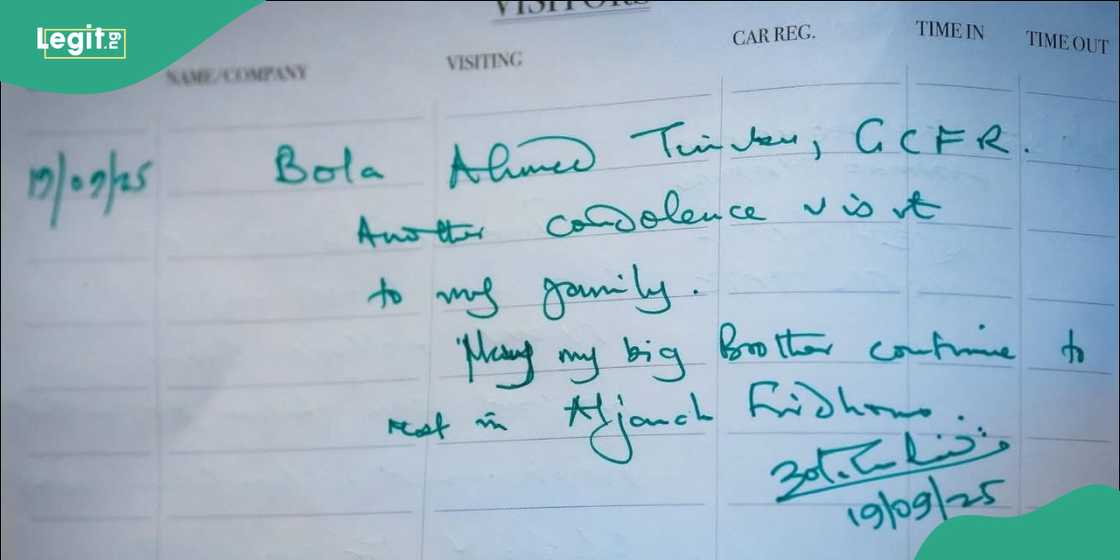 Legit.ng
VISITORS
NAME/COMPANY VISITING CAR REG. TIME IN TIME OUT
19/09/25 Bola Ahmed Tinubu, GCFR.
Another condolence visit
to my family.
May my big Brother continue to
rest in Aljanah Firdhaus.
19/09/25